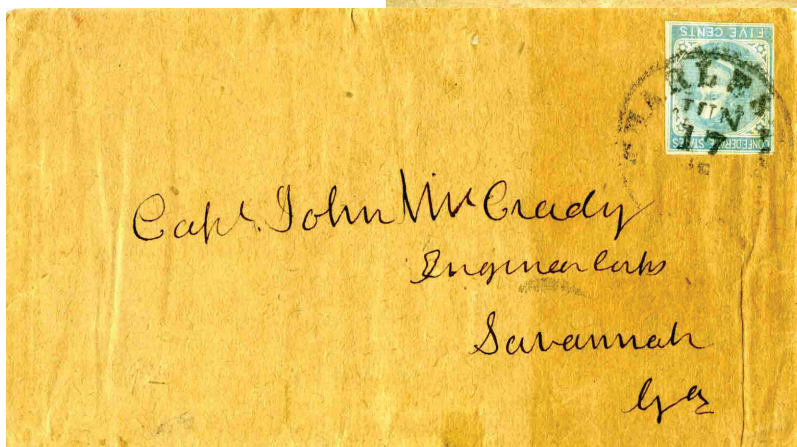 FIVE CENTS
CONFEDERATE STATES
JUN
17
Capt. John McCrady
Engineer Corps
Savannah
Ga